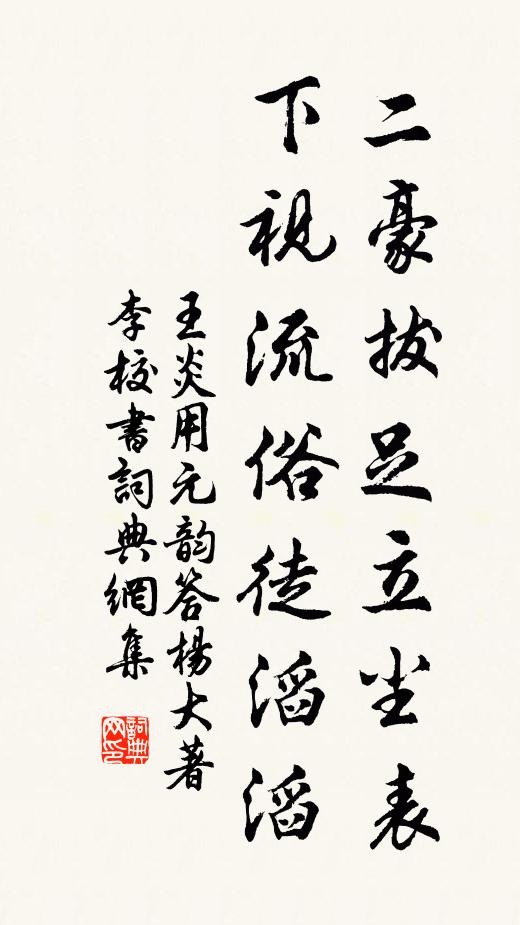 二豪拔足立尘表
下視流俗徒滔滔
王炎用元韵答楊大著
李校書詞典網集
詞典网印